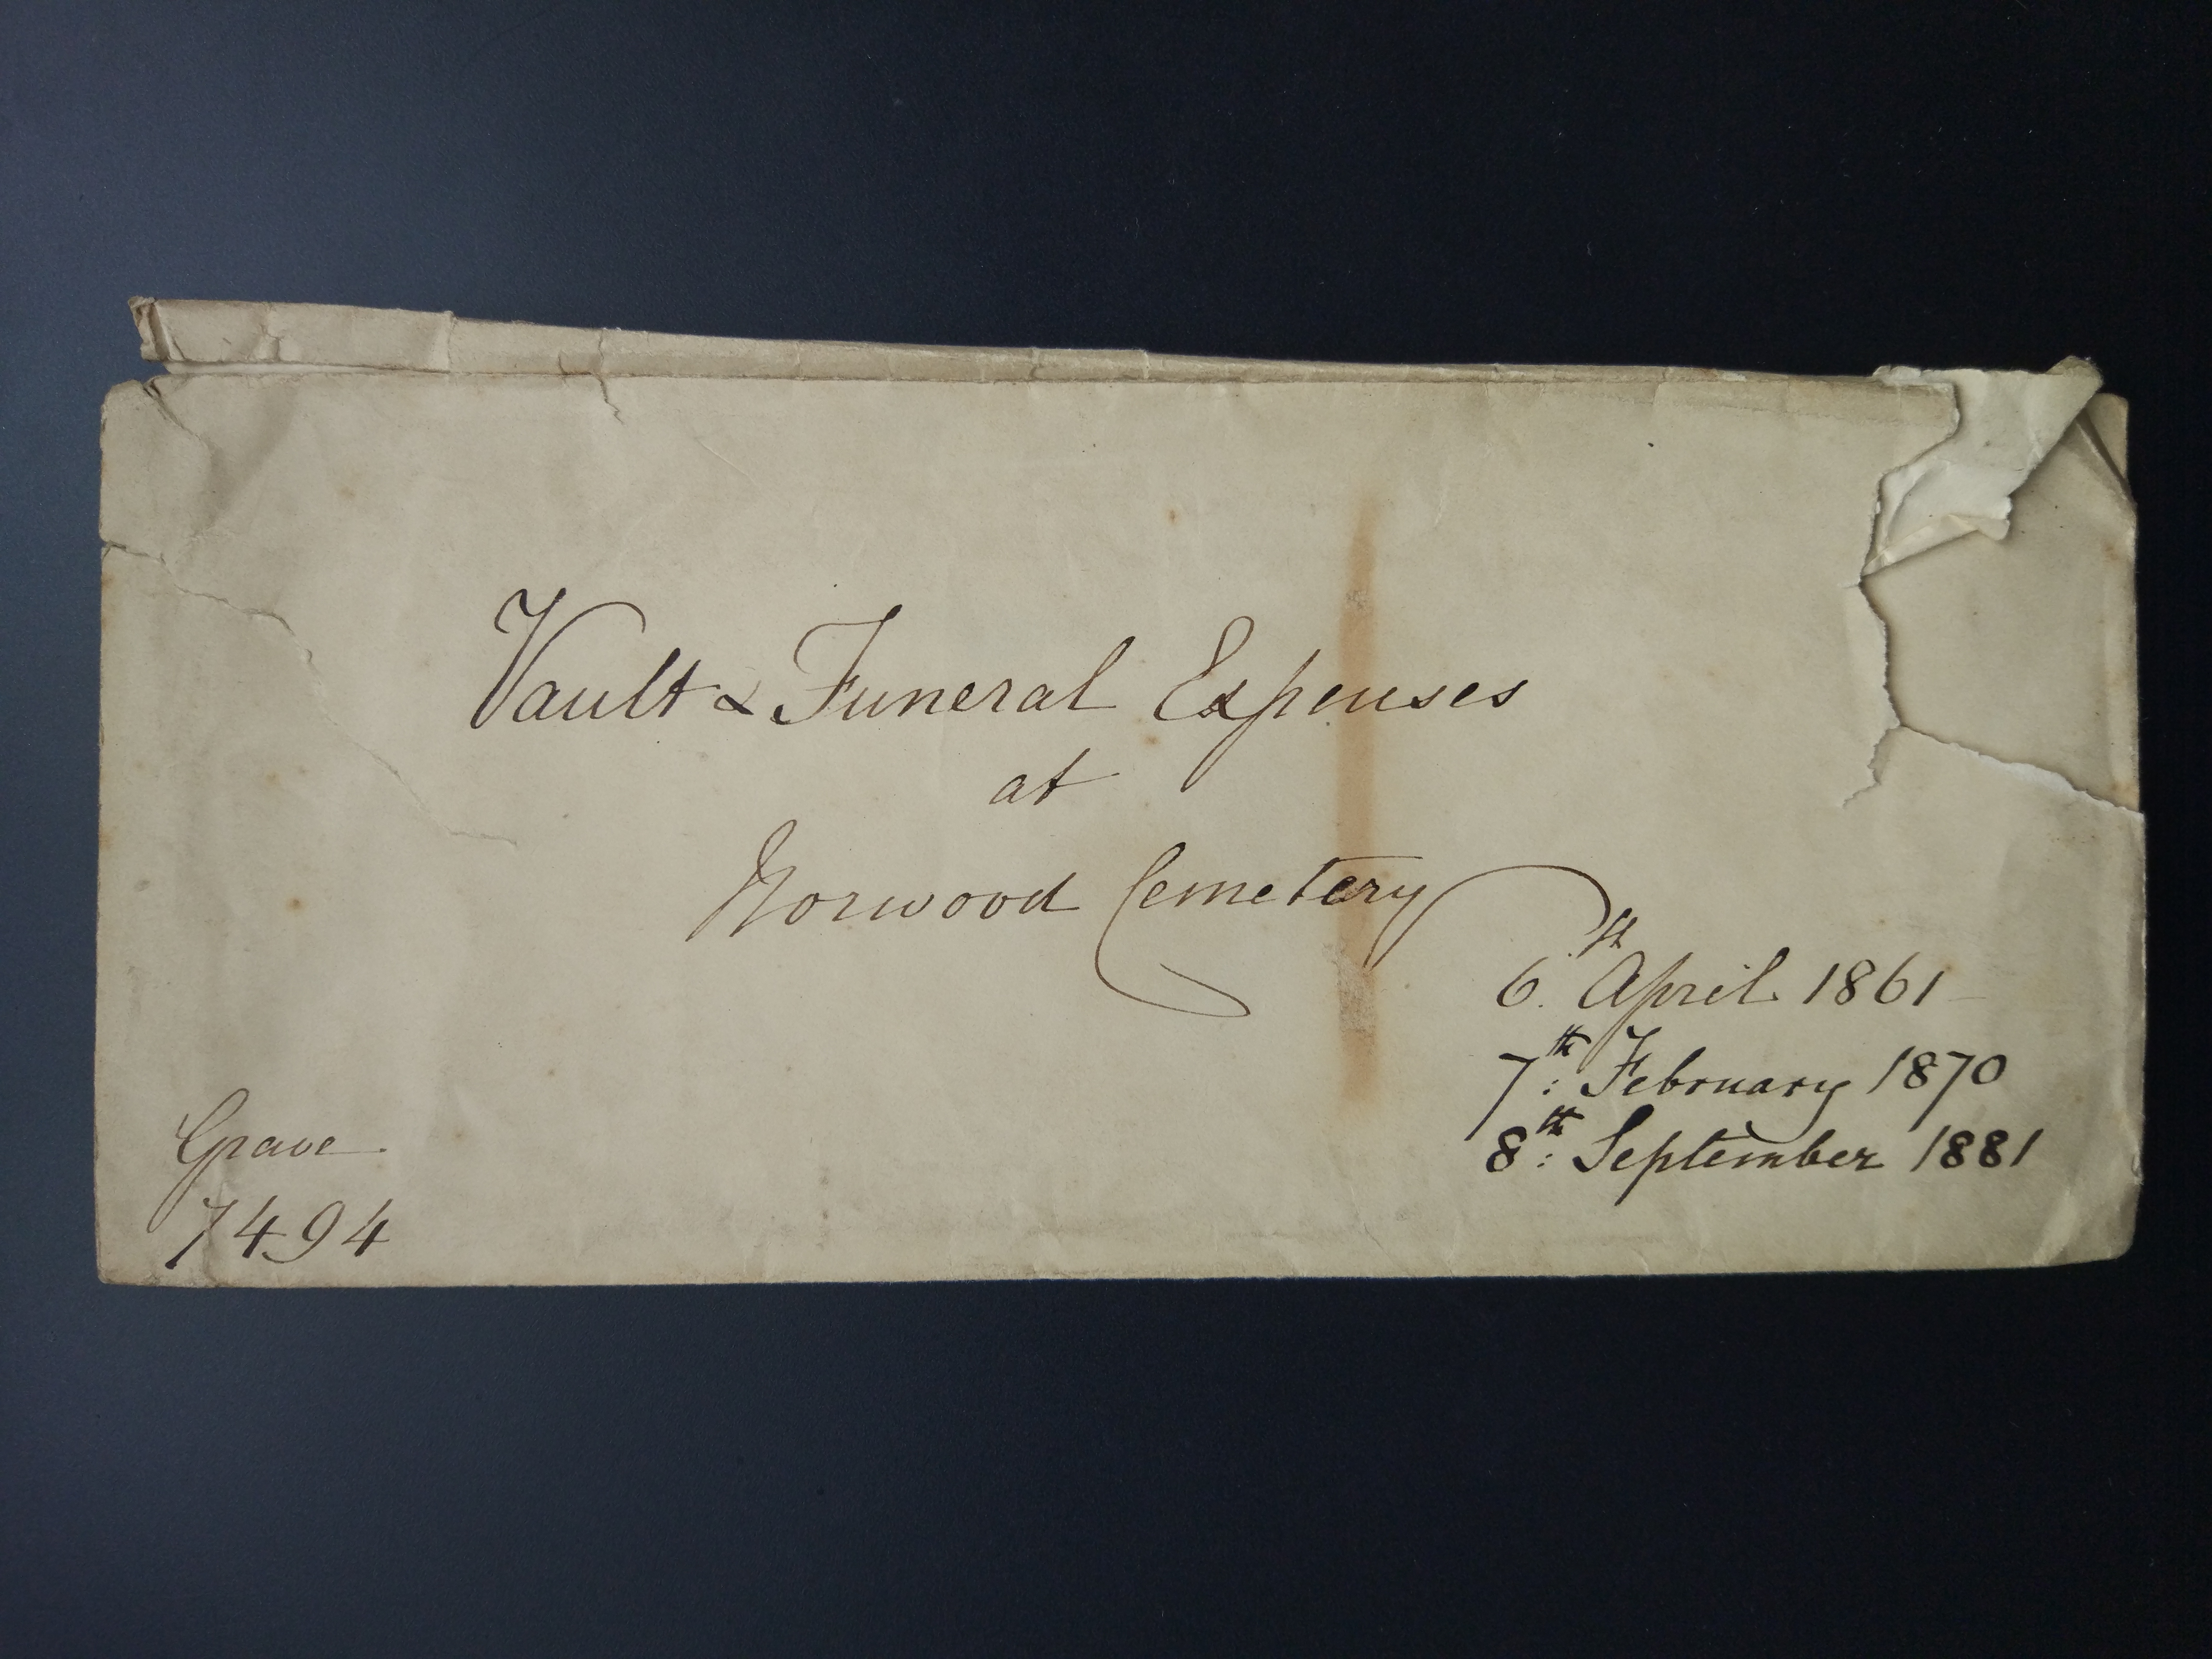 Vault & Funeral Expenses
at
Norwood Cemetery
6th April 1861
7th: February 1870
8th: September 1881
Grave
7494